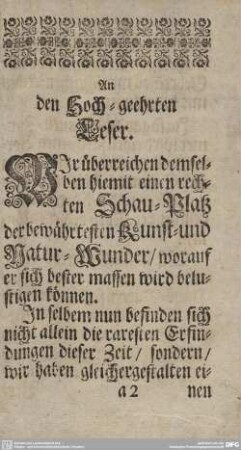 An
den Hoch-geehrten
Leser.
WIr überreichen demsel-
ben hiemit einen rech-
ten Schau-Platz
der bewährtesten Kunst-und
Natur-Wunder/worauf
er sich bester massen wird belu-
stigen können.
In selbem nun befinden sich
nicht allein die raresten Erfin-
dungen dieser Zeit/ sondern/
wir haben gleichergestalten ei-
a 2 nen